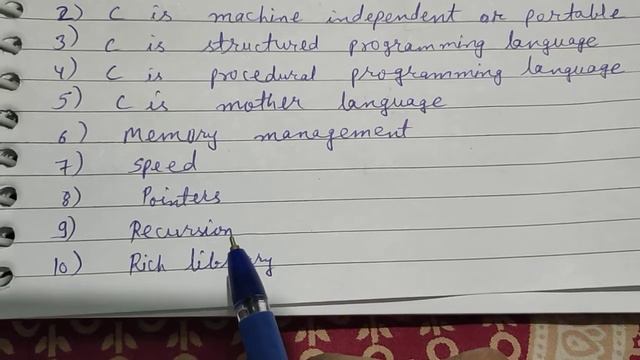 2) C is machine independent or portable
3) C is structured programming language
4) C is procedural programming language
5) C is mother language
6) Memory management
7) Speed
8) Pointers
9) Recursion
10) Rich library